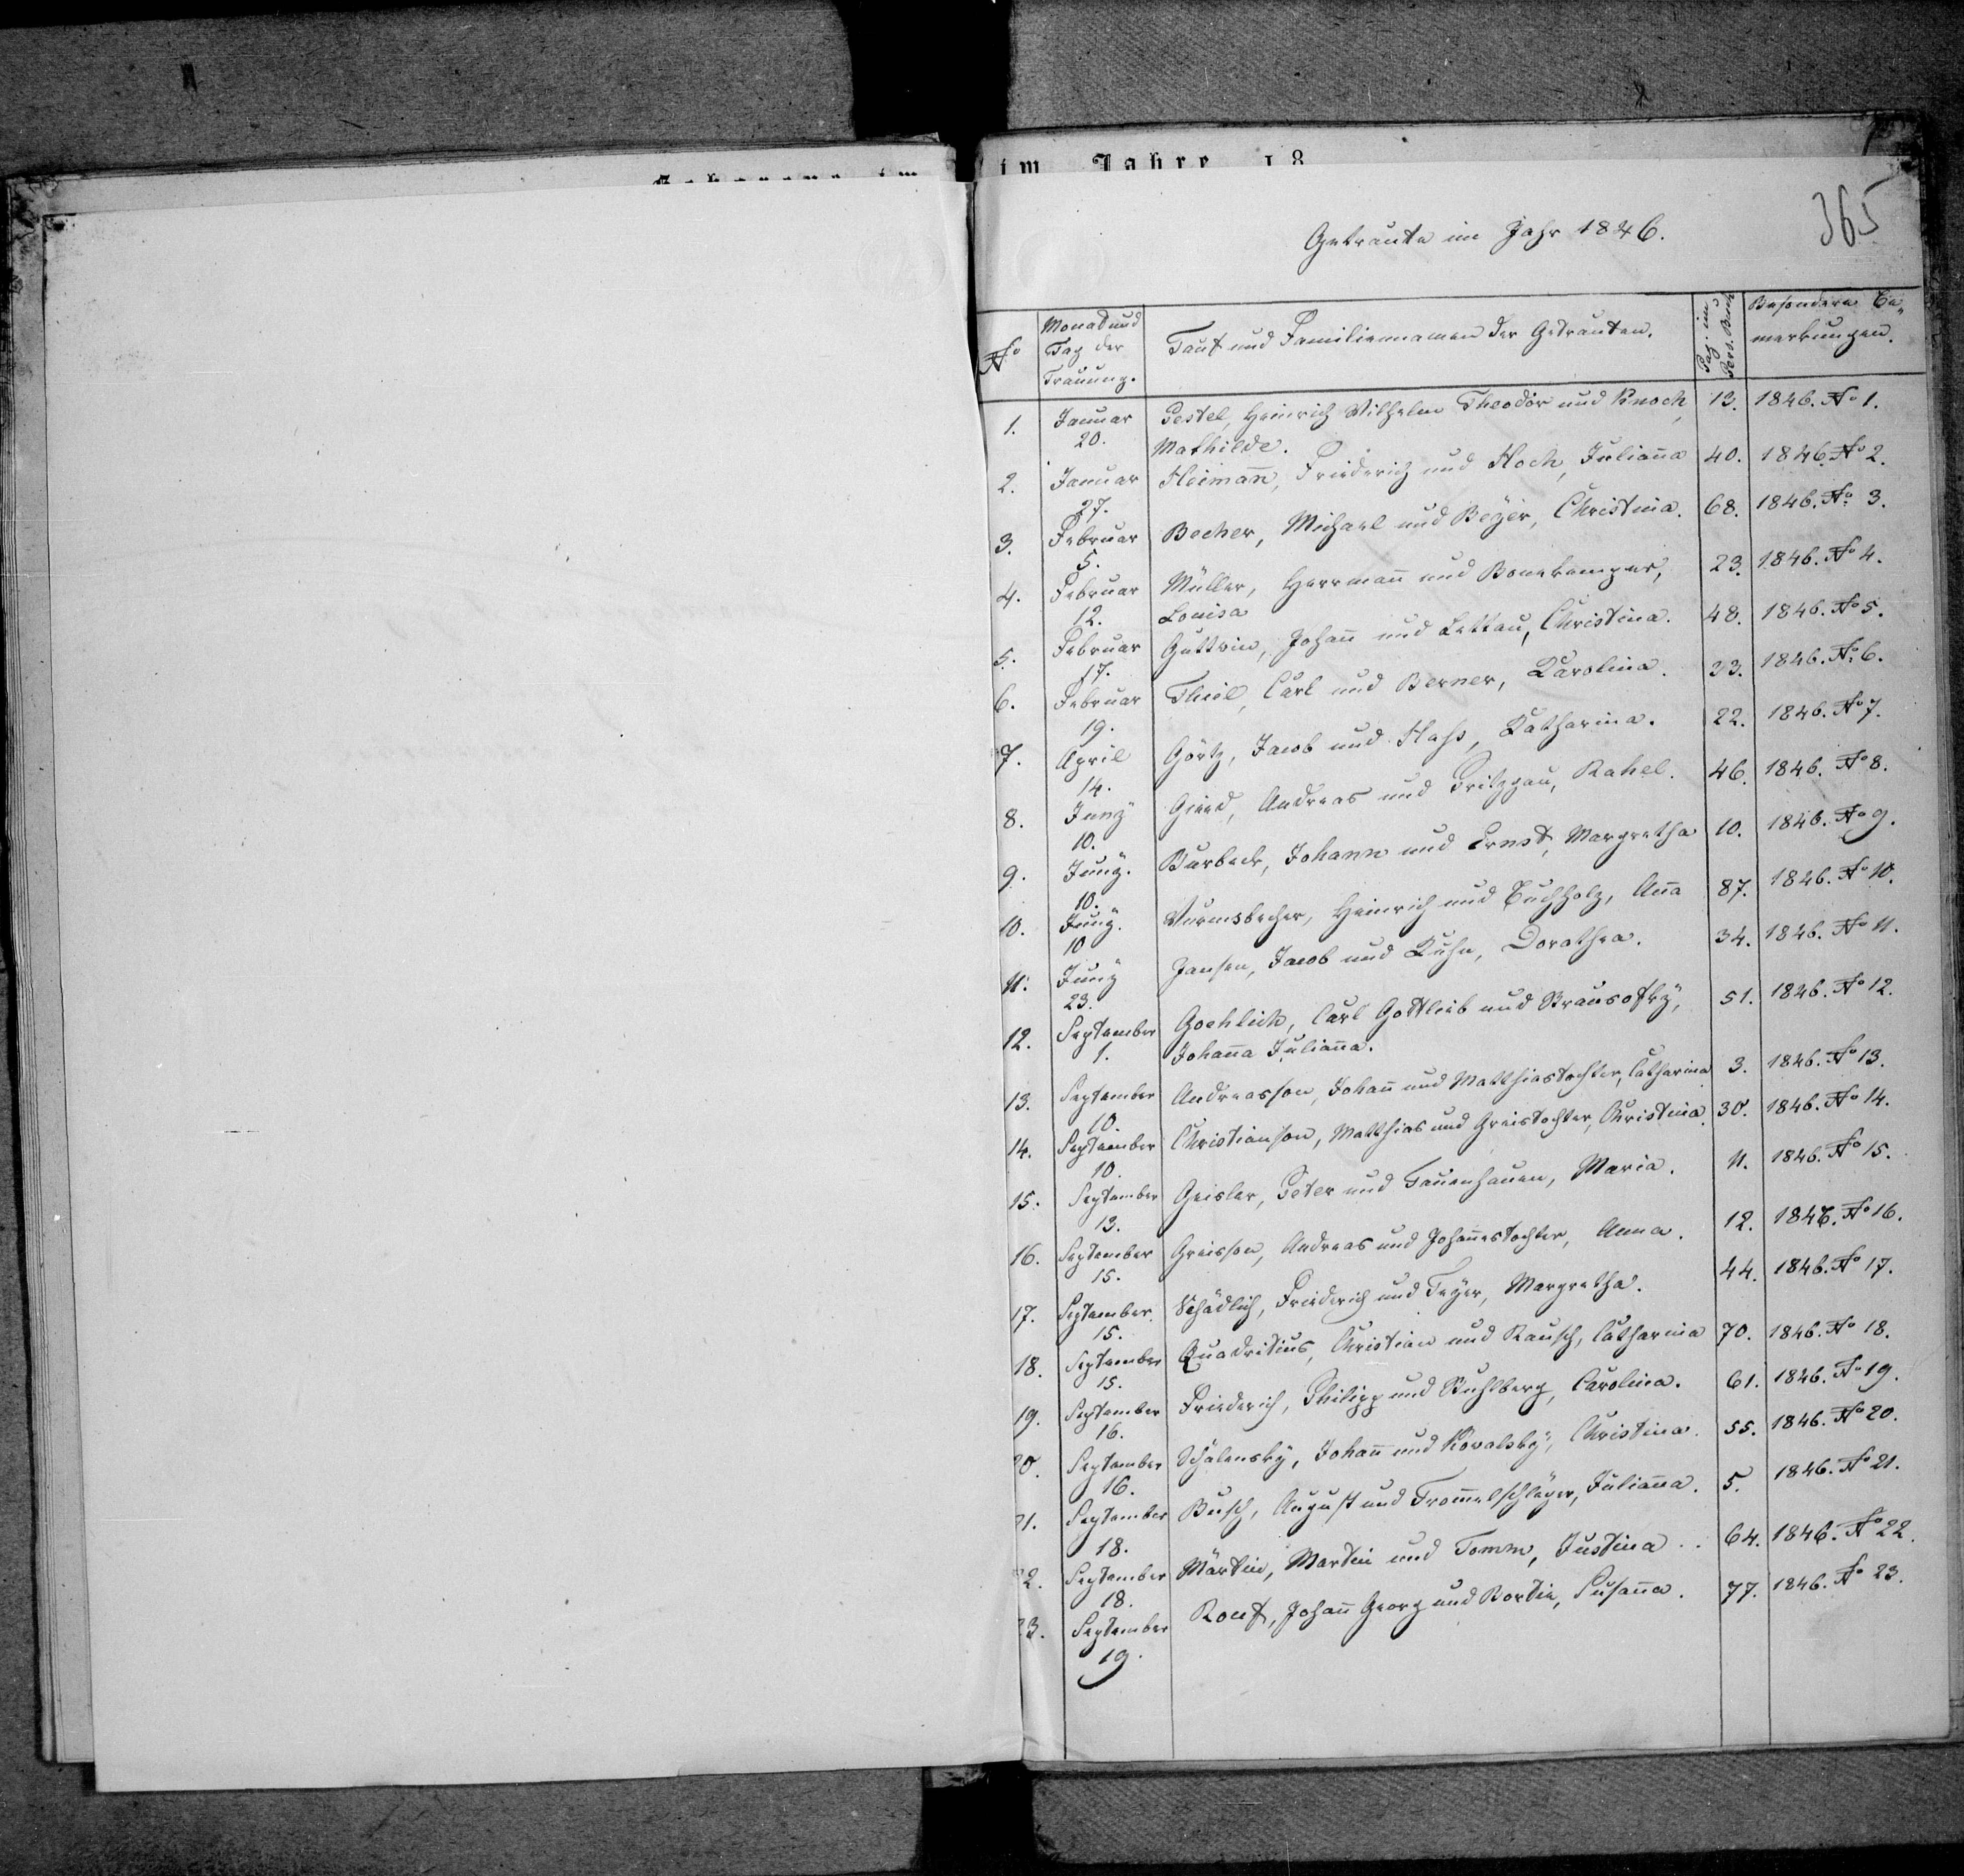 im Jahre 18
365
Getraute im Jahr 1846.
No
Monat und
Tag der
Trauung.
Tauf und Familiennamen der Getrauten.
Pag. im
Pers. Buch
Besondere Be-
merkungen.
1. Januar Pestel, Heinrich Wilhelm Theodor und Knoch, 13. 1846. No 1.
20. Mathilde.
2. Januar Heimañ, Friederich und Hoch, Juliaña 40. 1846. No 2.
27.
3. Februar Becher, Michael und Beÿer, Christina. 68. 1846. No 3.
5.
4. Februar Müller, Herrmañ und Bonekemper, 23. 1846. No 4.
12. Louisa
5. Februar Guttwin, Johañ und Lettau, Christina. 48. 1846. No 5.
17.
6. Februar Thiel, Carl und Berner, Karolina. 23. 1846. No 6.
19.
7. April Görtz, Jacob und Hass, Katharina. 22. 1846. No 7.
14.
8. Junÿ Andreas und Pritzgau, Rahel. 46. 1846. No 8.
10.
9. Junÿ. Burbach, Johann und Ernst, Margretha 10. 1846. No 9.
10.
10. Junÿ. Wurmsbecher, Heinrich und Buchholz, Aña 87. 1846. No 10.
10
11. Junÿ Jansen, Jacob und Kuhn, Dorothea. 34. 1846. No 11.
23.
12. September Goehlich, Carl Gottlieb und 51. 1846. No 12.
1. Johaña Juliaña.
13. September Andreasson, Johañ und Matthiastochter, Catharina 3. 1846. No 13.
10.
14. September Christianson, Matthias und Greistochter, Christina. 30. 1846. No 14.
10.
15. September Geisler, Peter und Tauenhauen, Maria. 11. 1846. No 15.
13.
16. September Greisson, Andreas und Johañestochter, Anna. 12. 1846. No 16.
15.
17. September. Schädlich, Friederich und Feÿer, Margretha. 44. 1846. No 17.
15.
18. September Quadritius, Christian und Rausch, Catharina 70. 1846. No 18.
15.
19. September Friederich, Philipp und Buhlberg, Carolina. 61. 1846. No 19.
16.
20. September Schalensky, Johañ und Kovalskÿ, Christina. 55. 1846. No 20.
16.
21. September Busch, August und Trom̃elschläger, Juliaña. 5. 1846. No 21.
18.
22. September Märtin, Martin und Tomm, Justina. 64. 1846. No 22.
18.
23. September Johañ Georg und Susaña. 77. 1846. No 23.
19.